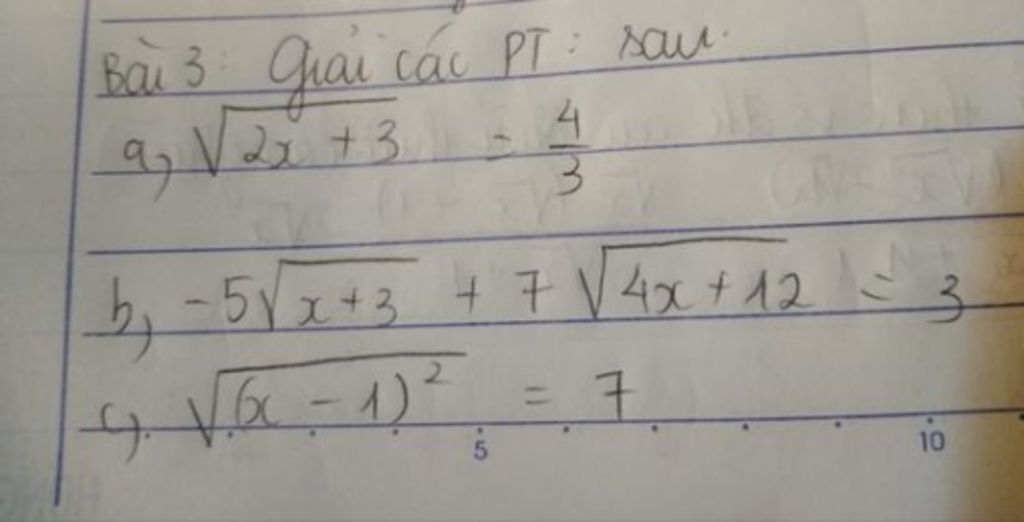 Bài 3: Giải các PT: sau.
a, √(2x + 3) = 4/3
b, -5√(x+3) + 7√(4x+12) = 3
c, √((x - 1)²) = 7
5 10